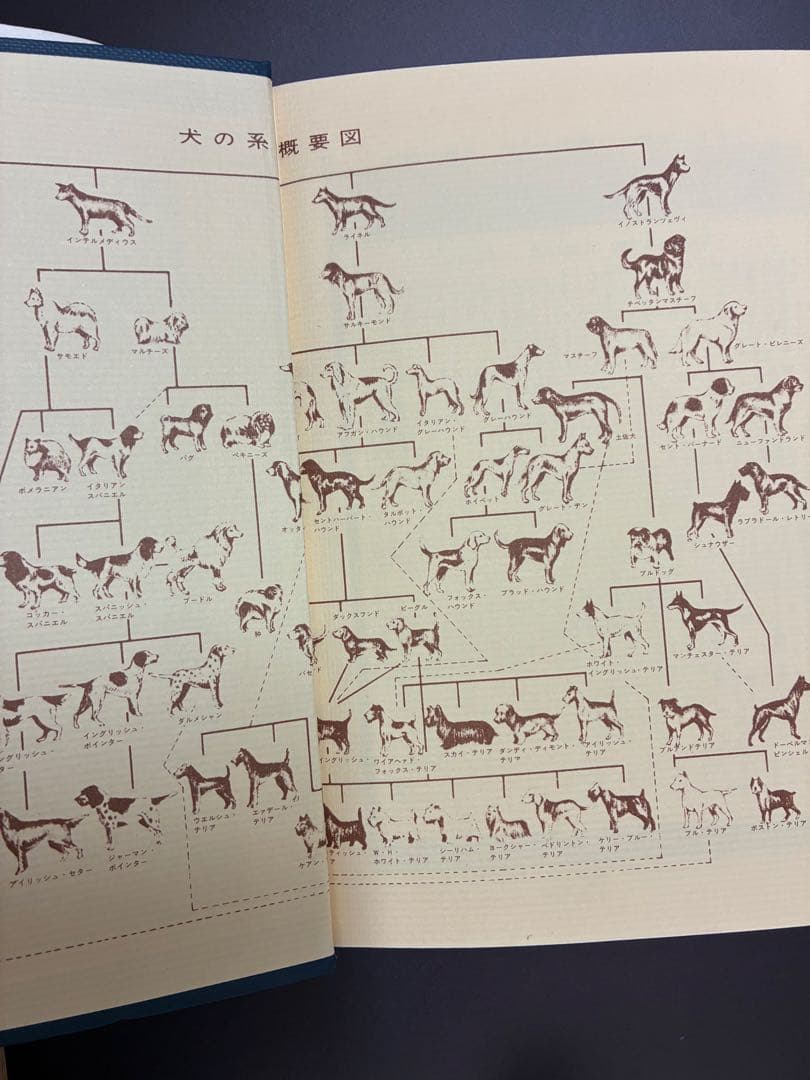 犬の系概要図
インテルメディウス
ライネル
イノストランフェヴィ
サルキーモンド
チベッタンマスチーフ
サモエド
マルチーズ
マスチーフ
グレート・ピレニーズ
アフガン・ハウンド
イタリアン・
グレーハウンド
グレーハウンド
土佐犬
パグ
ペキニーズ
セント・バーナード
ニューファントランド
ポメラニアン
イタリアン
スパニエル
セントハーバート
ハウンド
タルボット・
ハウンド
ホイペット
グレート・デン
シュナウザー
ラブラドール・レトリー
コッカー・
スパニエル
スパニッシュ・
スパニエル
プードル
狆
フォックス・
ハウンド
ブラッド・ハウンド
ブルドッグ
ダックスフンド
ビーグル
バセ
ホワイト・
イングリッシュ・テリア
マンチェスター・テリア
イングリッシュ・
ポインター
ダルメシャン
ングリッシュ・
ター
イングリッシュ・
ワイアヘッド・
フォックス・テリア
スカイ・テリア
ダンディ・ディモント・
テリア
アイリッシュ・
テリア
ブルテンドテリア
ドーベルマ
ピンシェル
アイリッシュ・セター
ジャーマン・
ポインター
ウエルシュ・
テリア
エァデール・
テリア
ケアン・
ティッシュ・
テリア
W・H・
ホワイト・テリア
シーリハム・
テリア
ヨークシャー・
テリア
ベドリントン・
テリア
ケリー・ブルー・
テリア
ブル・テリア
ボストン・テリア